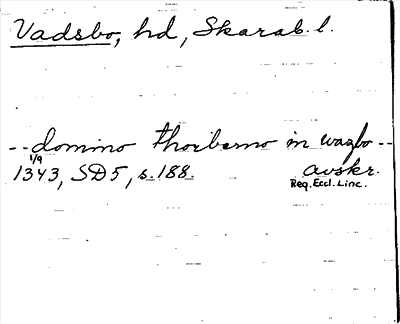 Vadsbo, hd, Skarab. l.
-- domino thorberno in wazbo --
1/9
1343, SD5, s. 188. avskr.
Reg. Eccl. Linc.